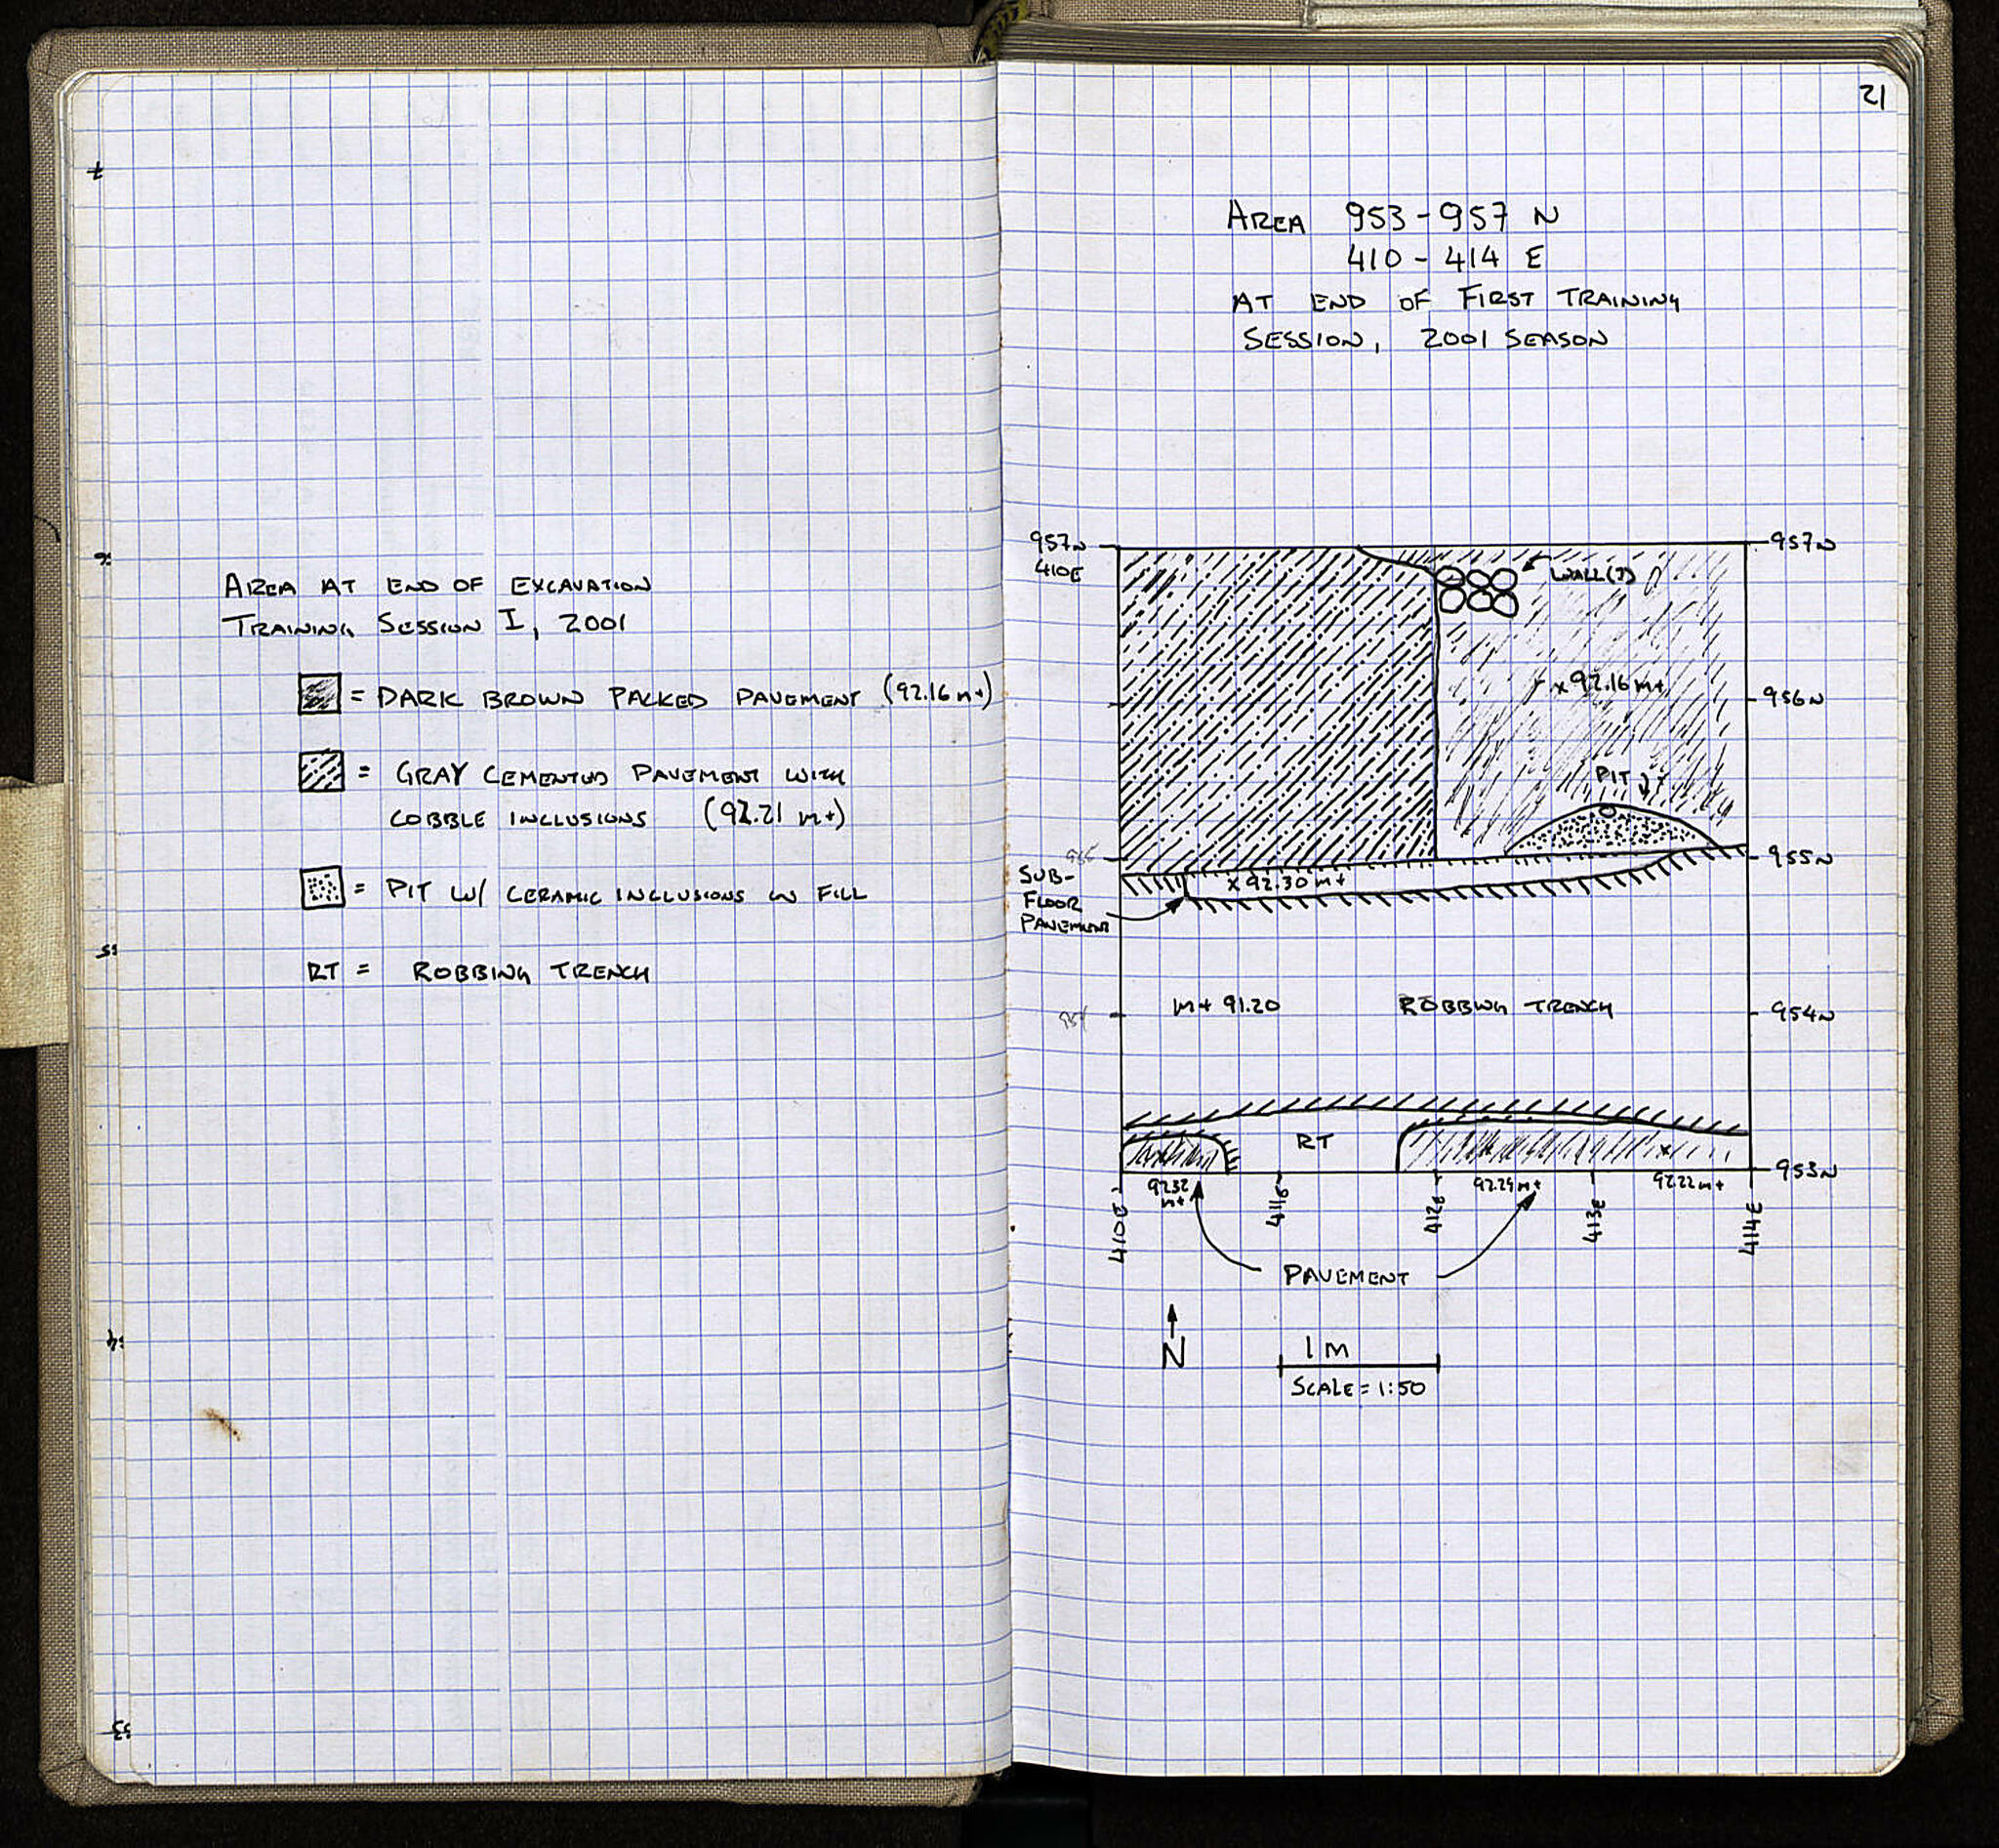 AREA AT END OF EXCAVATION
TRAINING SESSION I, 2001
= DARK BROWN PACKED PAVEMENT (92.16 m+)
= GRAY CEMENTED PAVEMENT WITH
COBBLE INCLUSIONS (92.21 m+)
= PIT W/ CERAMIC INCLUSIONS IN FILL
RT = ROBBING TRENCH
21
AREA 953-957 N
410-414 E
AT END OF FIRST TRAINING
SESSION, 2001 SEASON
957N
957N
410E
WALL(?)
x 92.16 m+
956N
PIT
955
955N
SUB-
FLOOR
PAVEMENT
x 92.30 m+
954
m+ 91.20
ROBBING TRENCH
954N
RT
953N
92.32
m+
92.24 m+
92.22 m+
410E
411E
412E
413E
414E
PAVEMENT
N
1 M
SCALE = 1:50